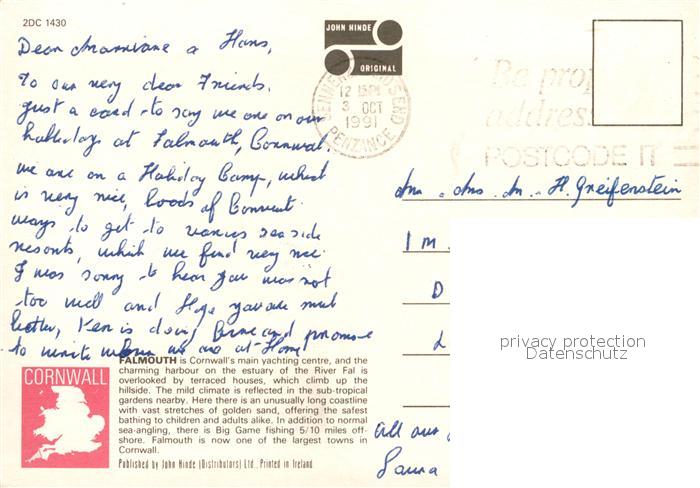 2DC 1430
JOHN HINDE
ORIGINAL
SENNEN LANDS END
12 15PM
3 OCT
1991
PENZANCE
Be prop
address
POSTCODE IT
Dear Marriane & Hans,
To our very dear Friends.
Just a card to say we are on our
holidays at Falmouth, Cornwall,
we are on a Holiday Camp, which
is very nice, loads of
ways to get to various sea side
resorts, which we find very nice.
I was sorry to hear you was not
too well and Hope you are much
better, Ken is doing fine and promose
to write when we are at Home
H. Greifenstein
I M.
D
L
privacy protection
Datenschutz
All our
Laura
CORNWALL
FALMOUTH is Cornwall's main yachting centre, and the
charming harbour on the estuary of the River Fal is
overlooked by terraced houses, which climb up the
hillside. The mild climate is reflected in the sub-tropical
gardens nearby. Here there is an unusually long coastline
with vast stretches of golden sand, offering the safest
bathing to children and adults alike. In addition to normal
sea-angling, there is Big Game fishing 5/10 miles off-
shore. Falmouth is now one of the largest towns in
Cornwall.
Published by John Hinde (Distributors) Ltd., Printed in Ireland.